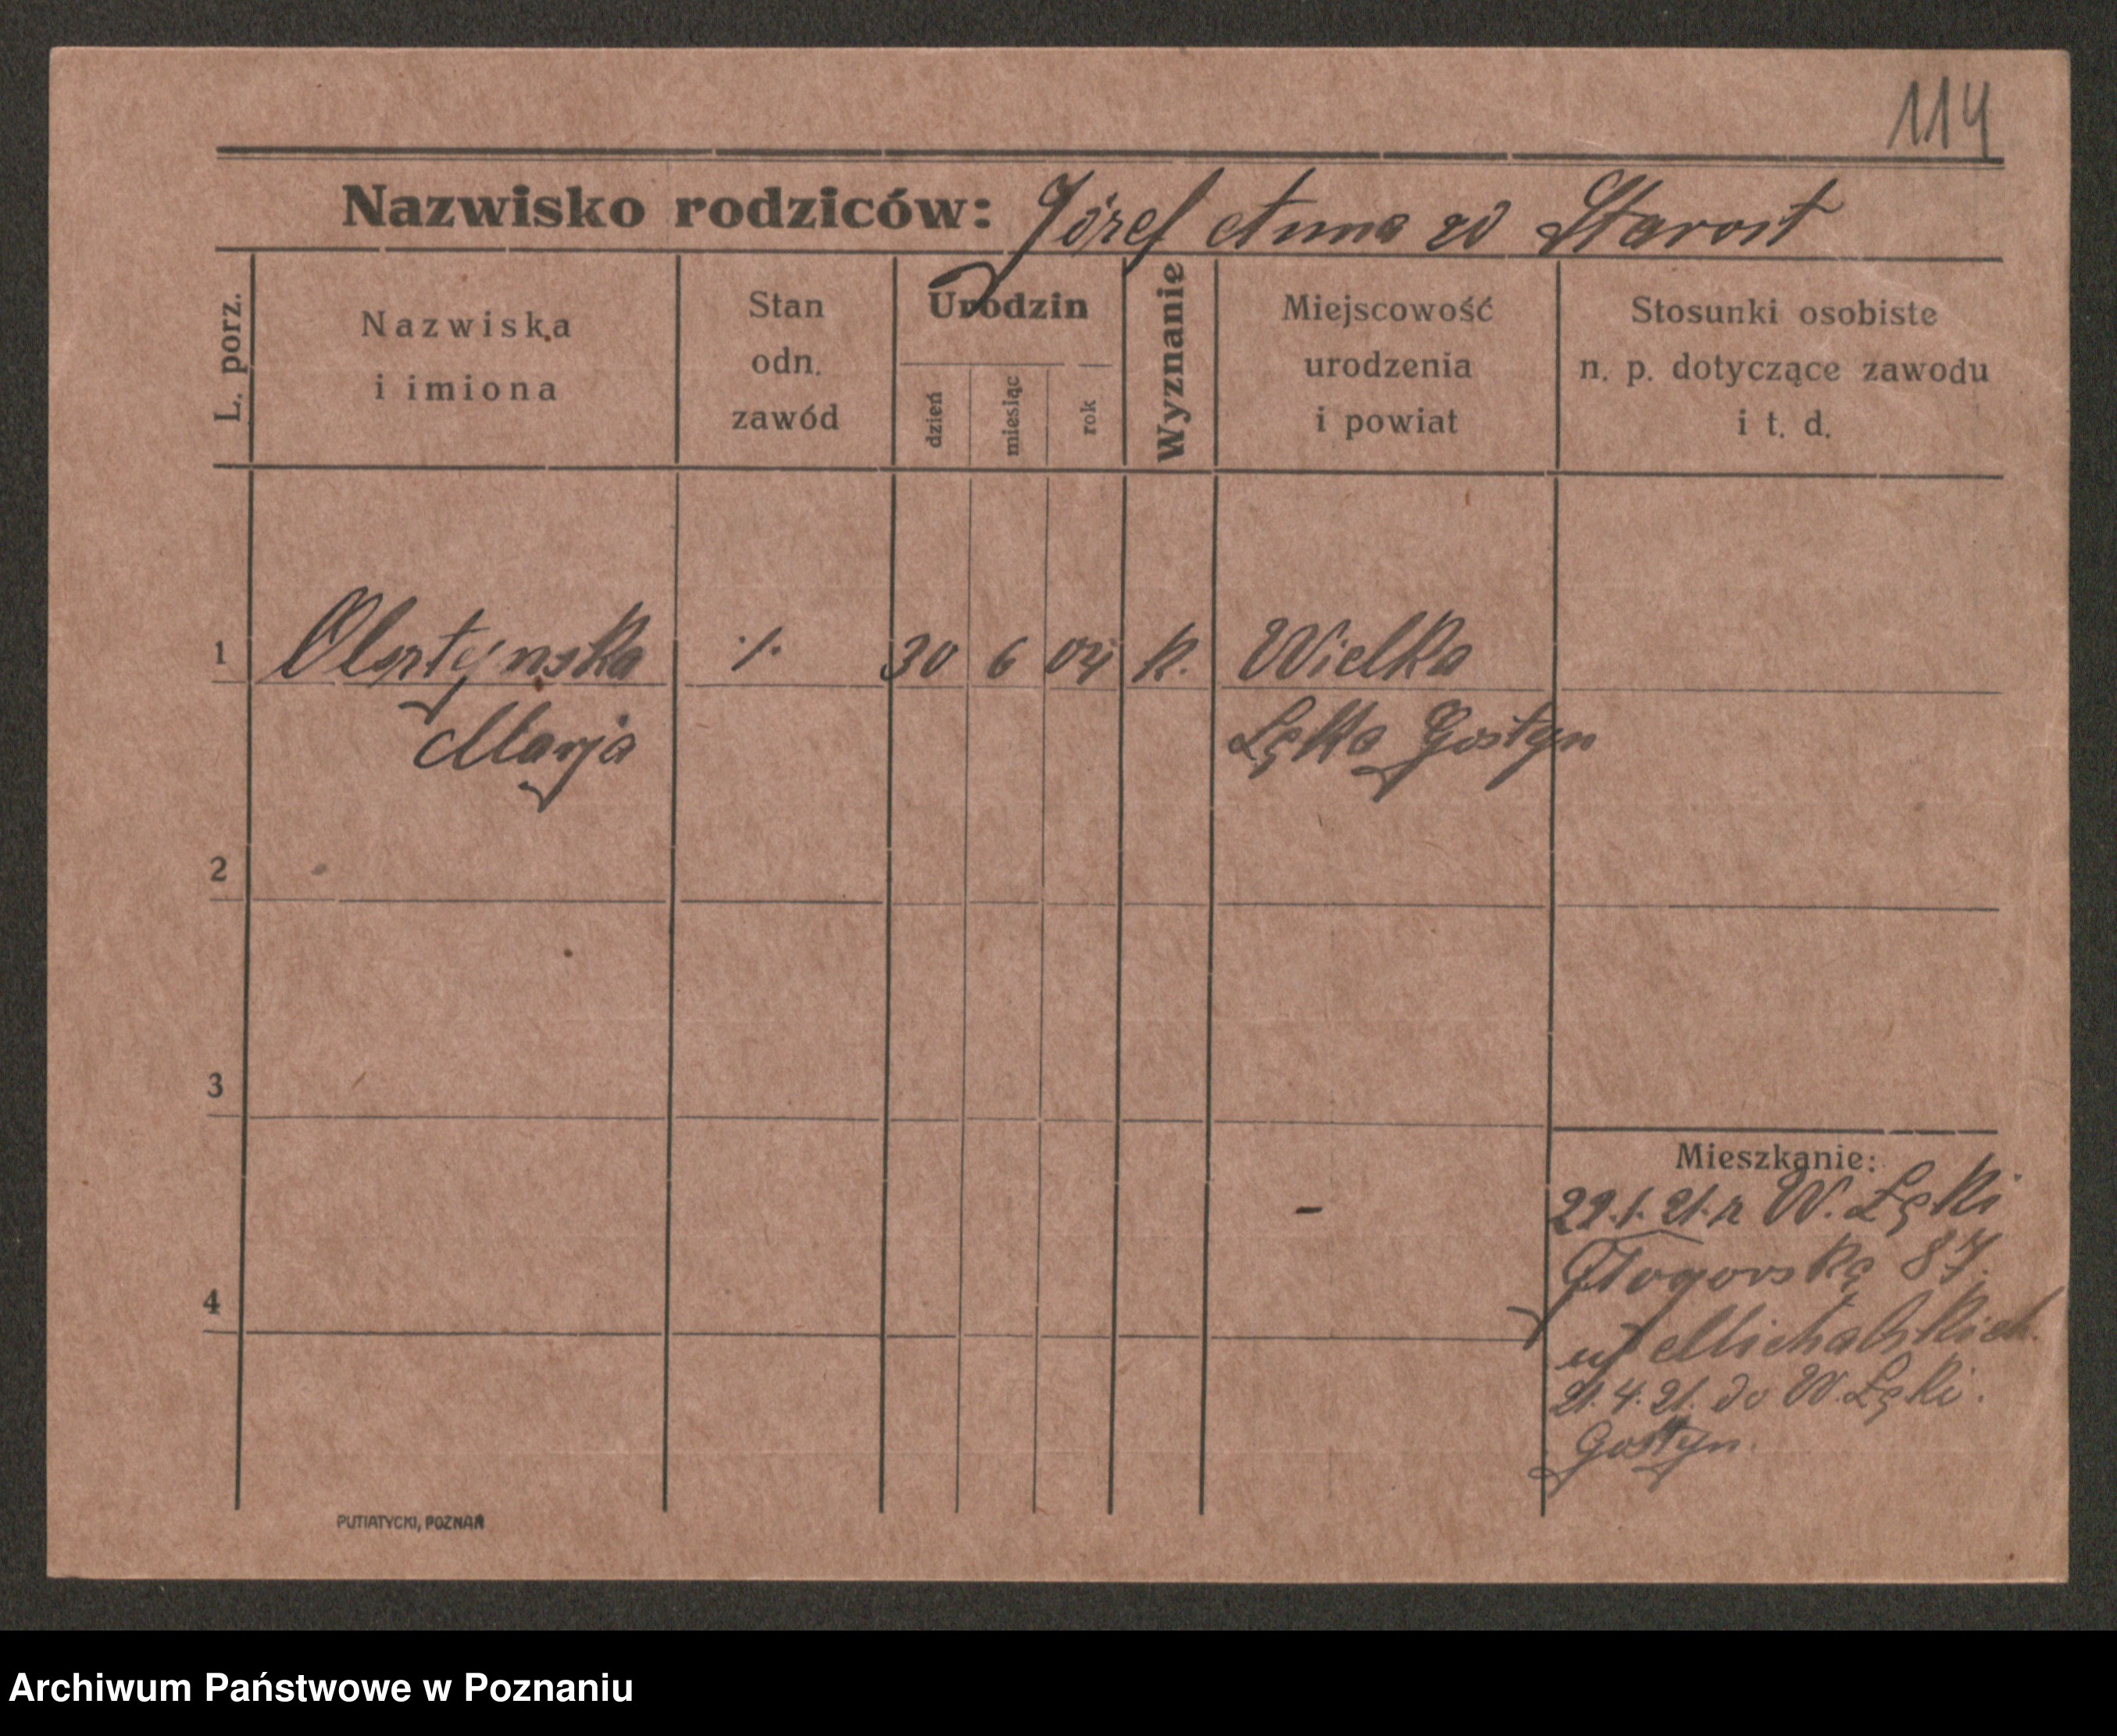 114
Nazwisko rodziców: Józef Anna zd Starost
L. porz.
Nazwiska
i imiona
Stan
odn.
zawód
Urodzin
dzień
miesiąc
rok
Wyznanie
Miejscowość
urodzenia
i powiat
Stosunki osobiste
n. p. dotyczące zawodu
i t. d.
1 Olsztynska ·/· 30 6 04 k. Wielka
Marja Łęka Gostyn
2
3
4
Mieszkanie:
22.1.21. z W. Łęki
Głogowska 87.
u Michalskich.
21.4.21. do W. Łęki.
Gostyn.
PUTIATYCKI, POZNAŃ
Archiwum Państwowe w Poznaniu